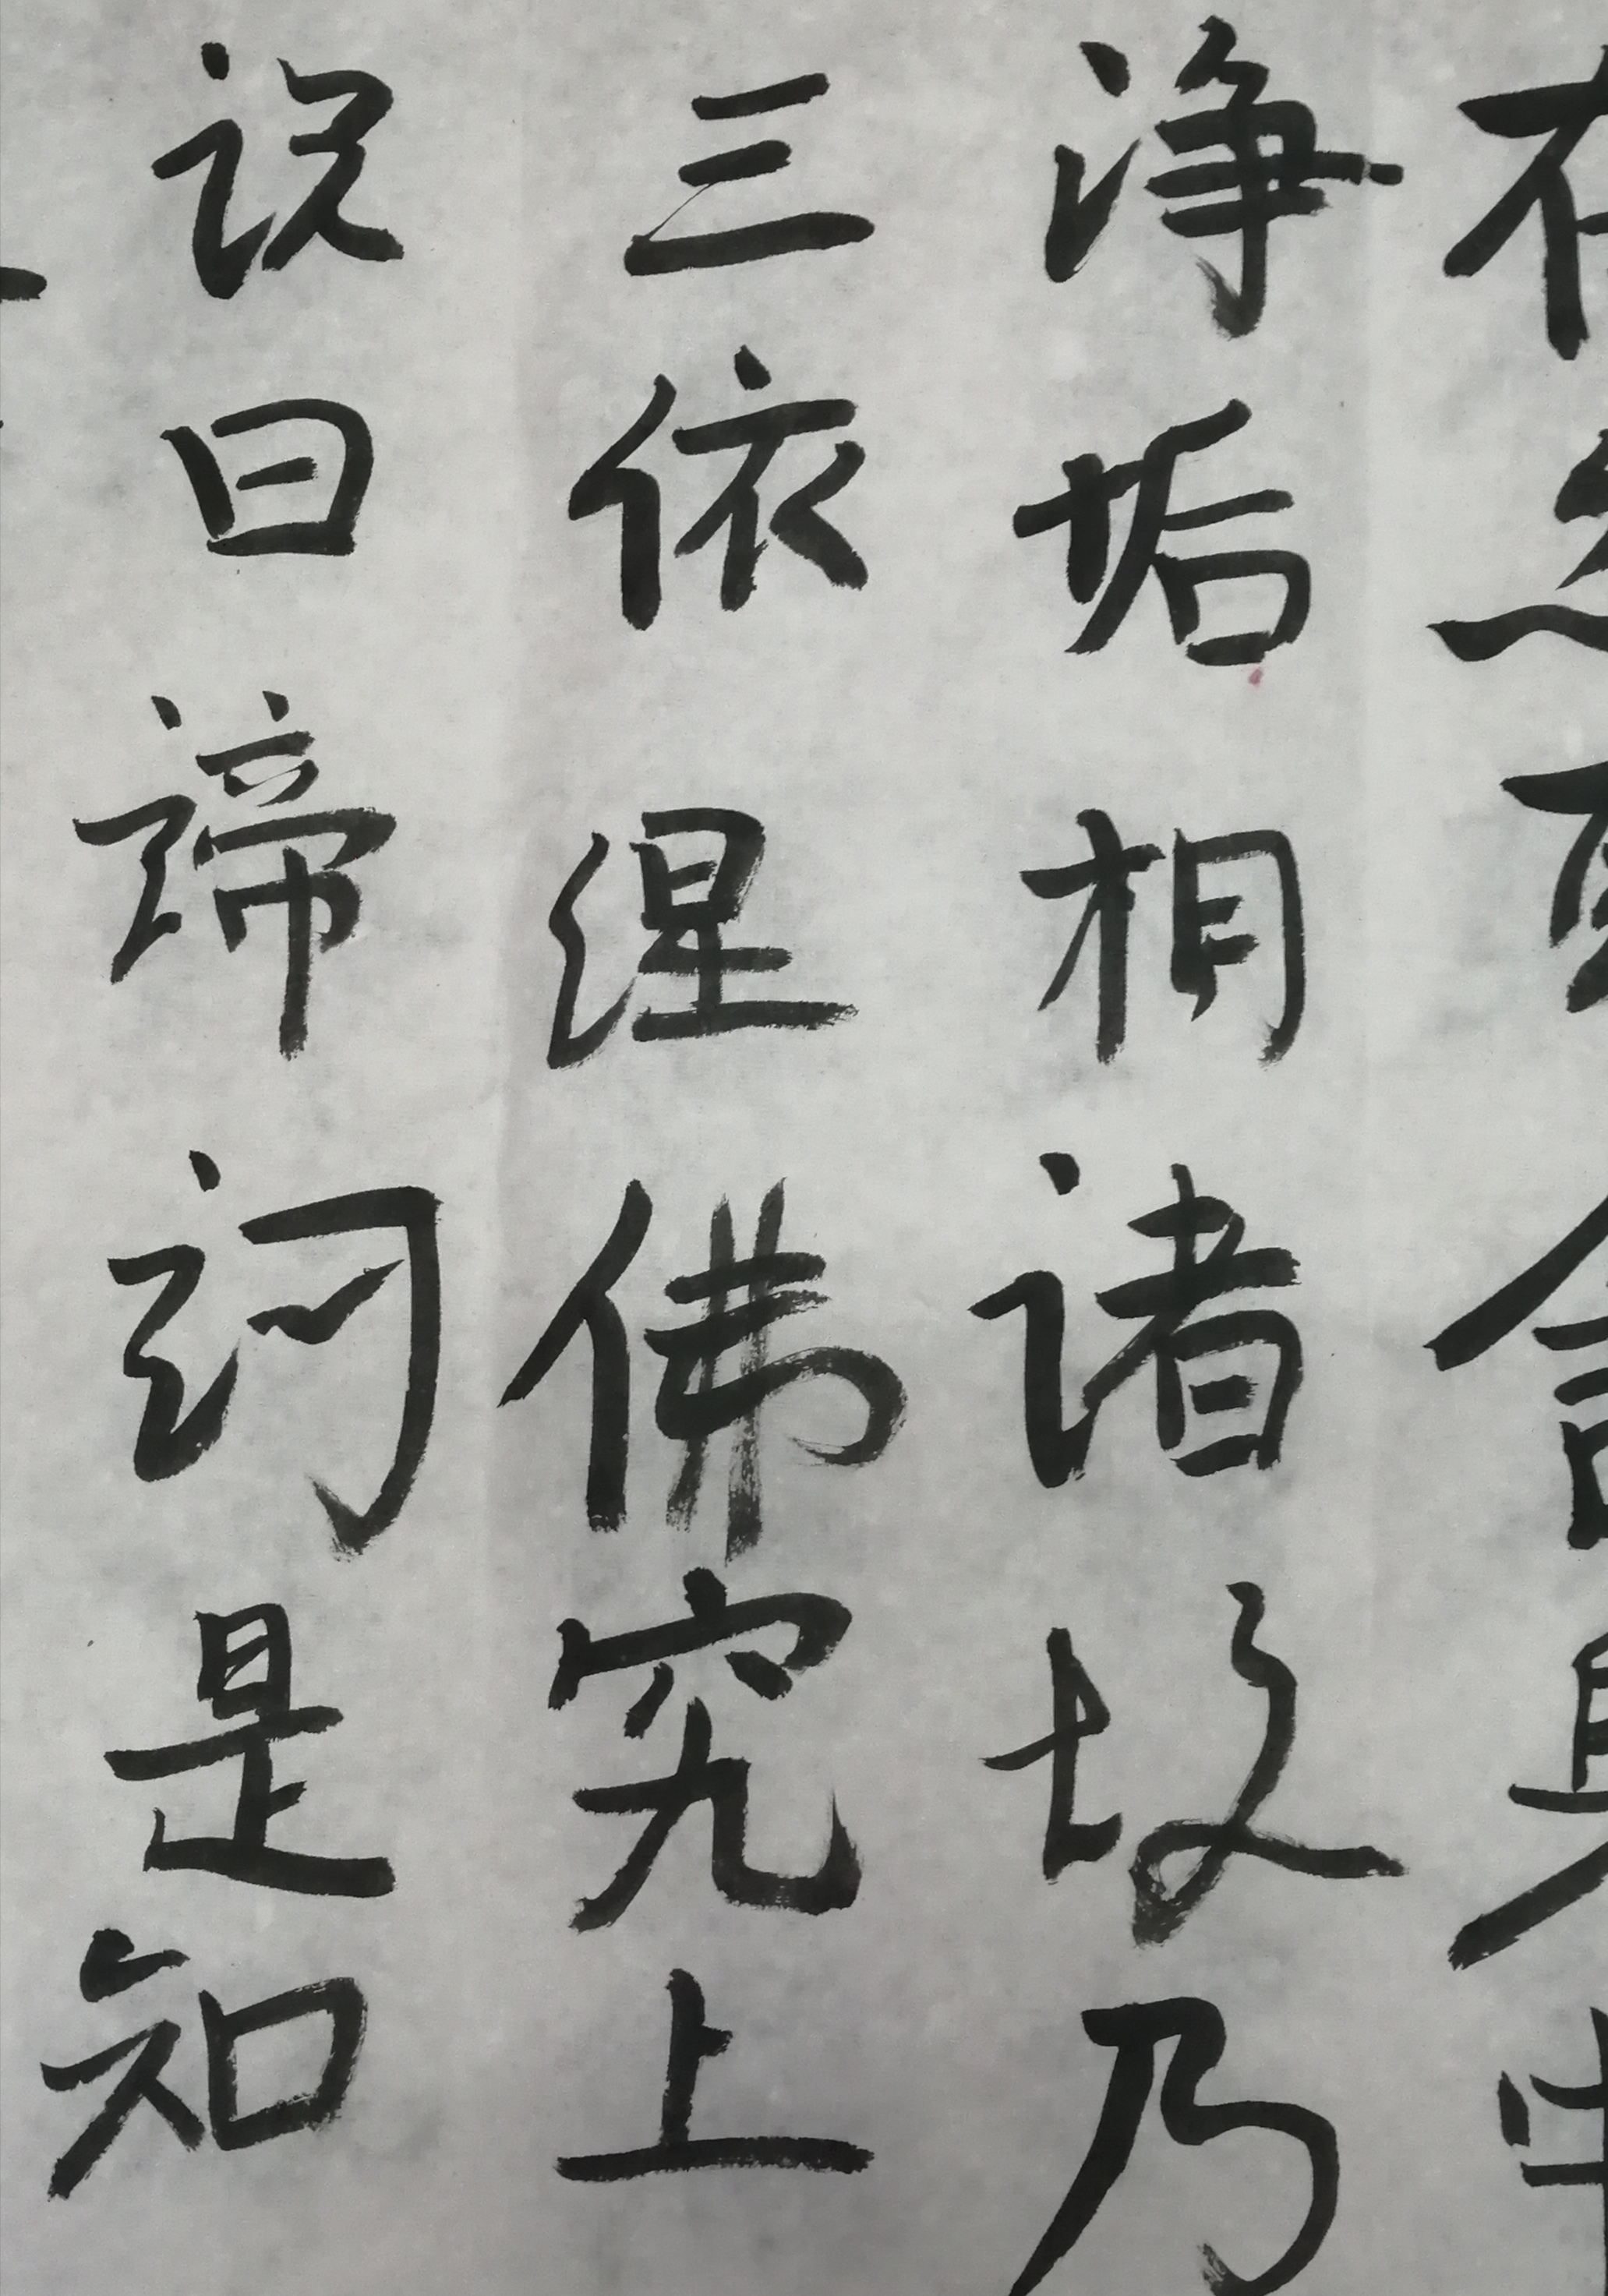 净垢相诸故乃
三依涅佛究上
说曰谛诃是知